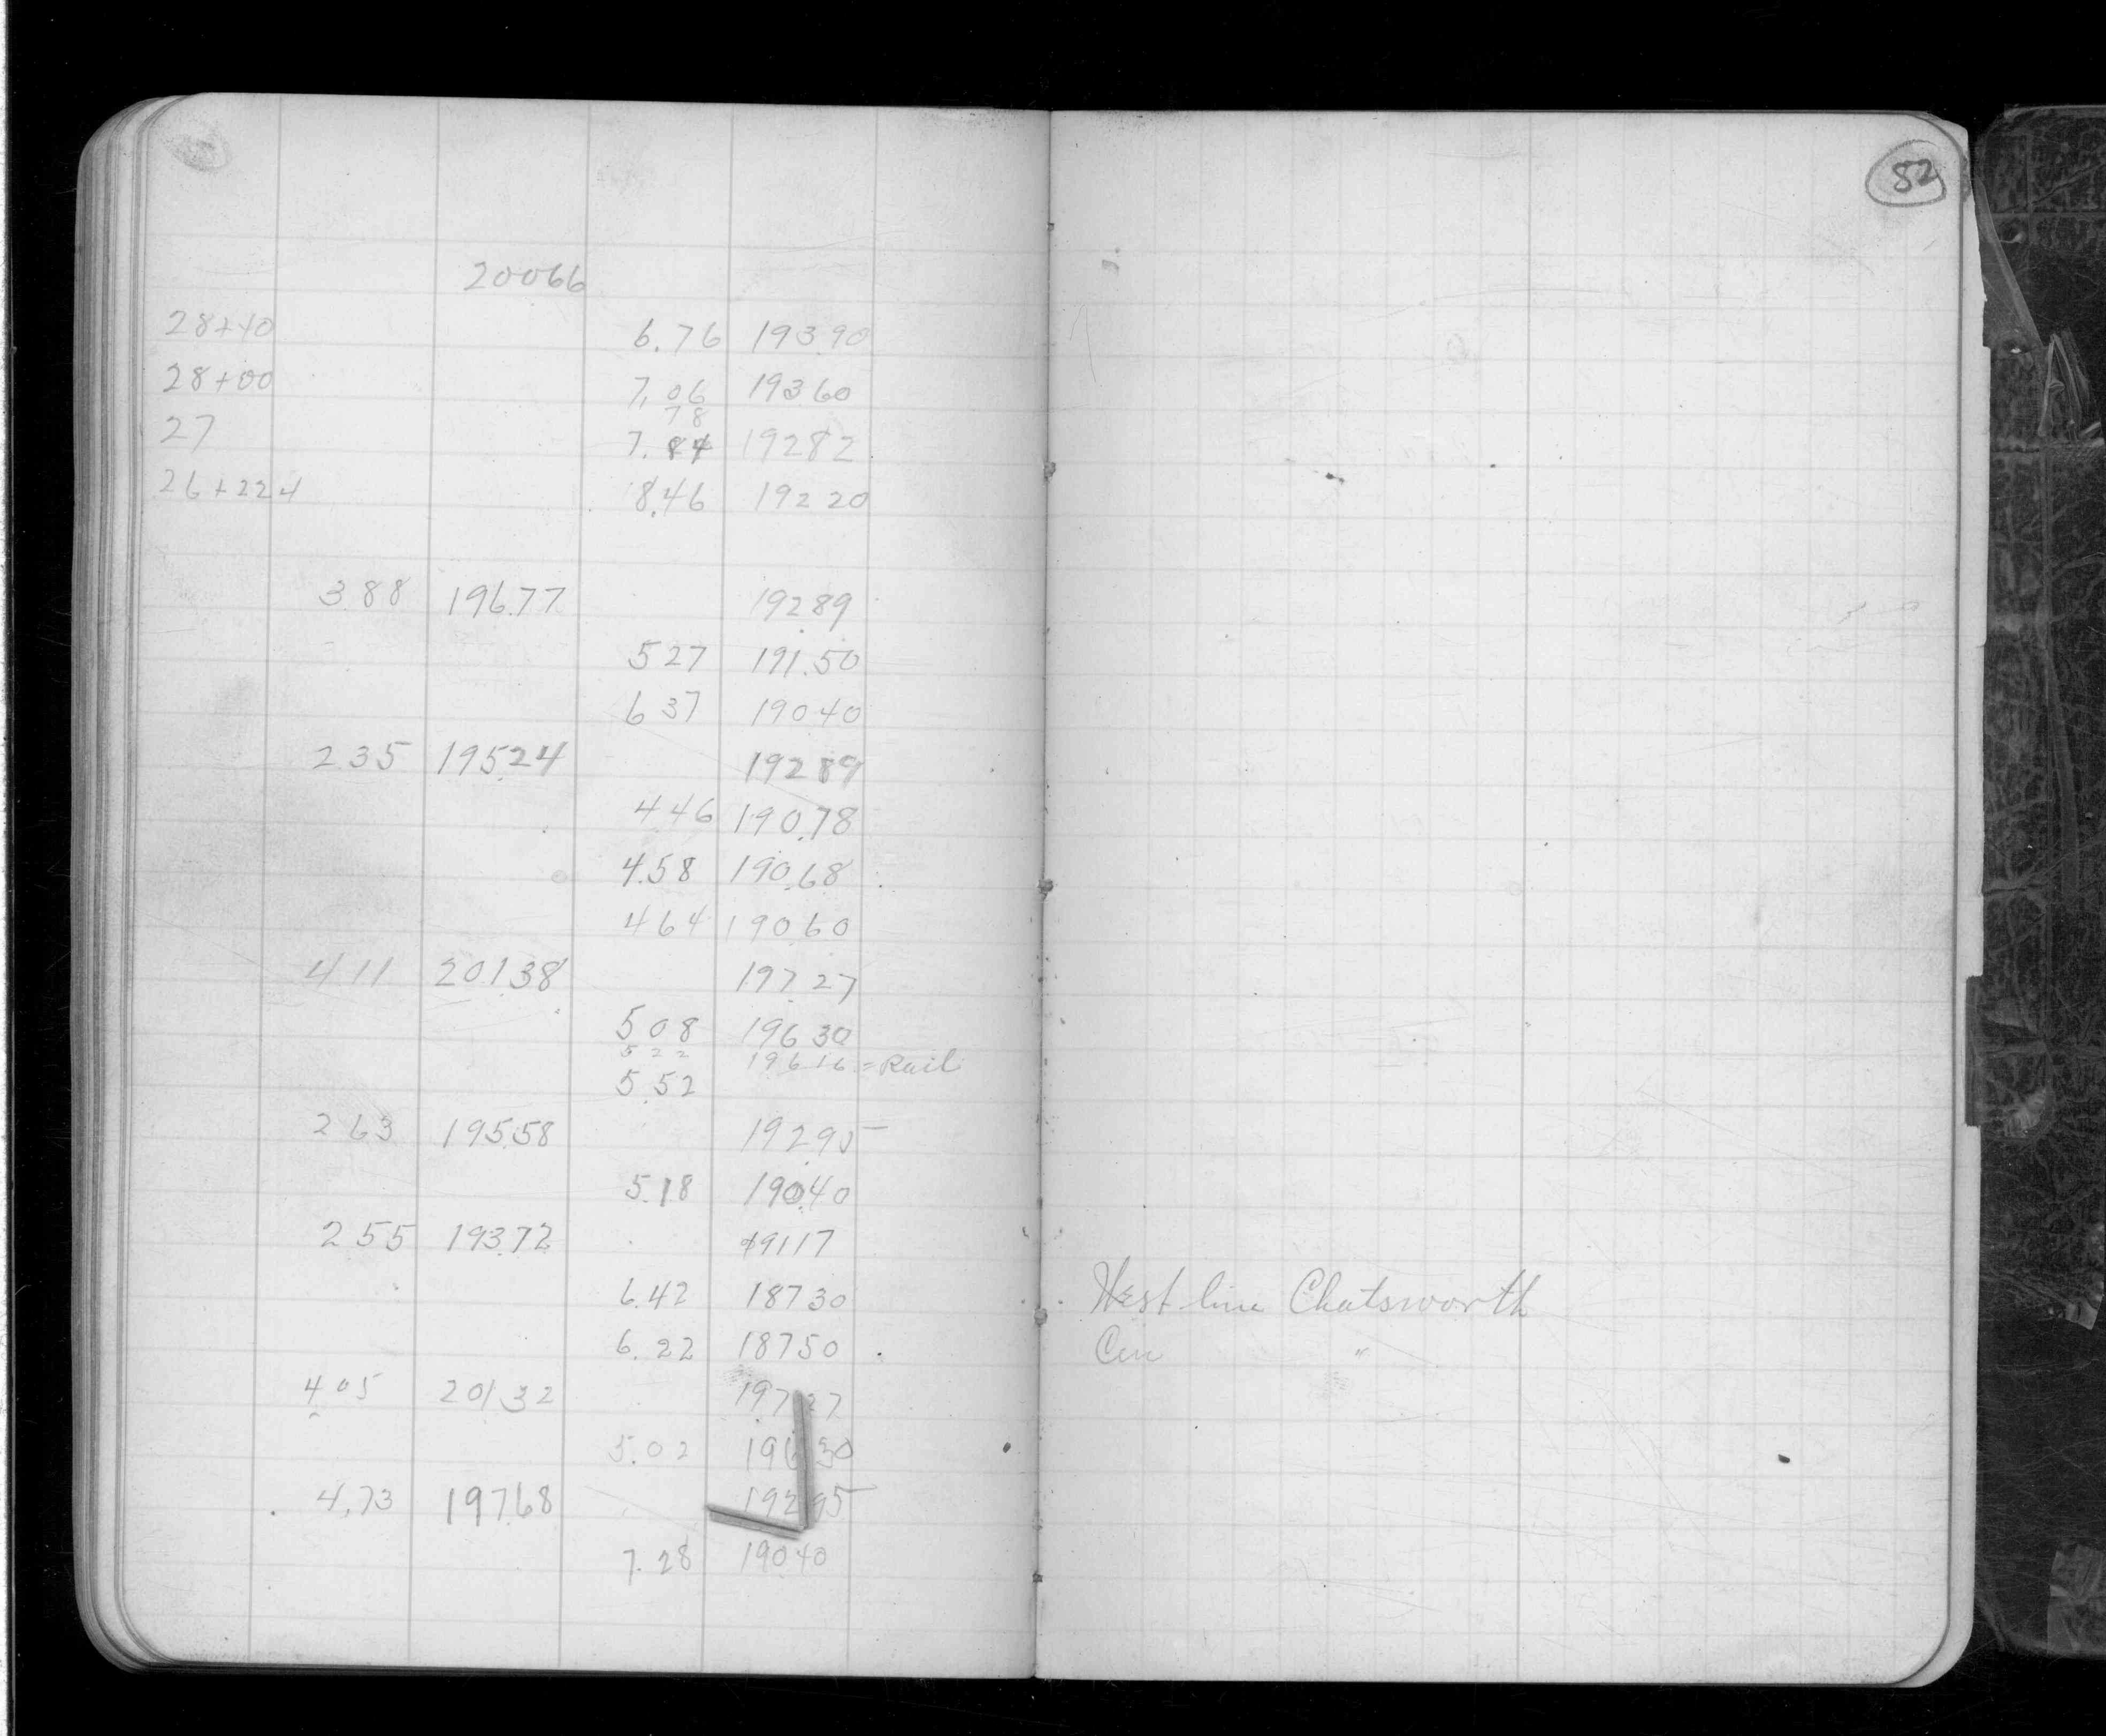 82
20066
28+40 6.76 193.90
28+00 7.06 193.60
78
27 7.84 192 82
26+22 4 8.46 192 20
3 88 196.77 192.89
5 27 191.50
6 37 190 40
2 35 195.24 192 89
4 46 190.78
4.58 190.68
4 64 190 60
4 11 201 38 197.27
5 08 196 30
5 22 196 16 = Rail
5.52
2 63 195.58 192.95
5.18 190.40
2 55 193.72 191 17
6.42 187 30 West line Chatsworth
6.22 187 50 Cen "
4 05 201 32 197.27
5.02 196 30
4.73 197.68 192 95
7.28 190 40